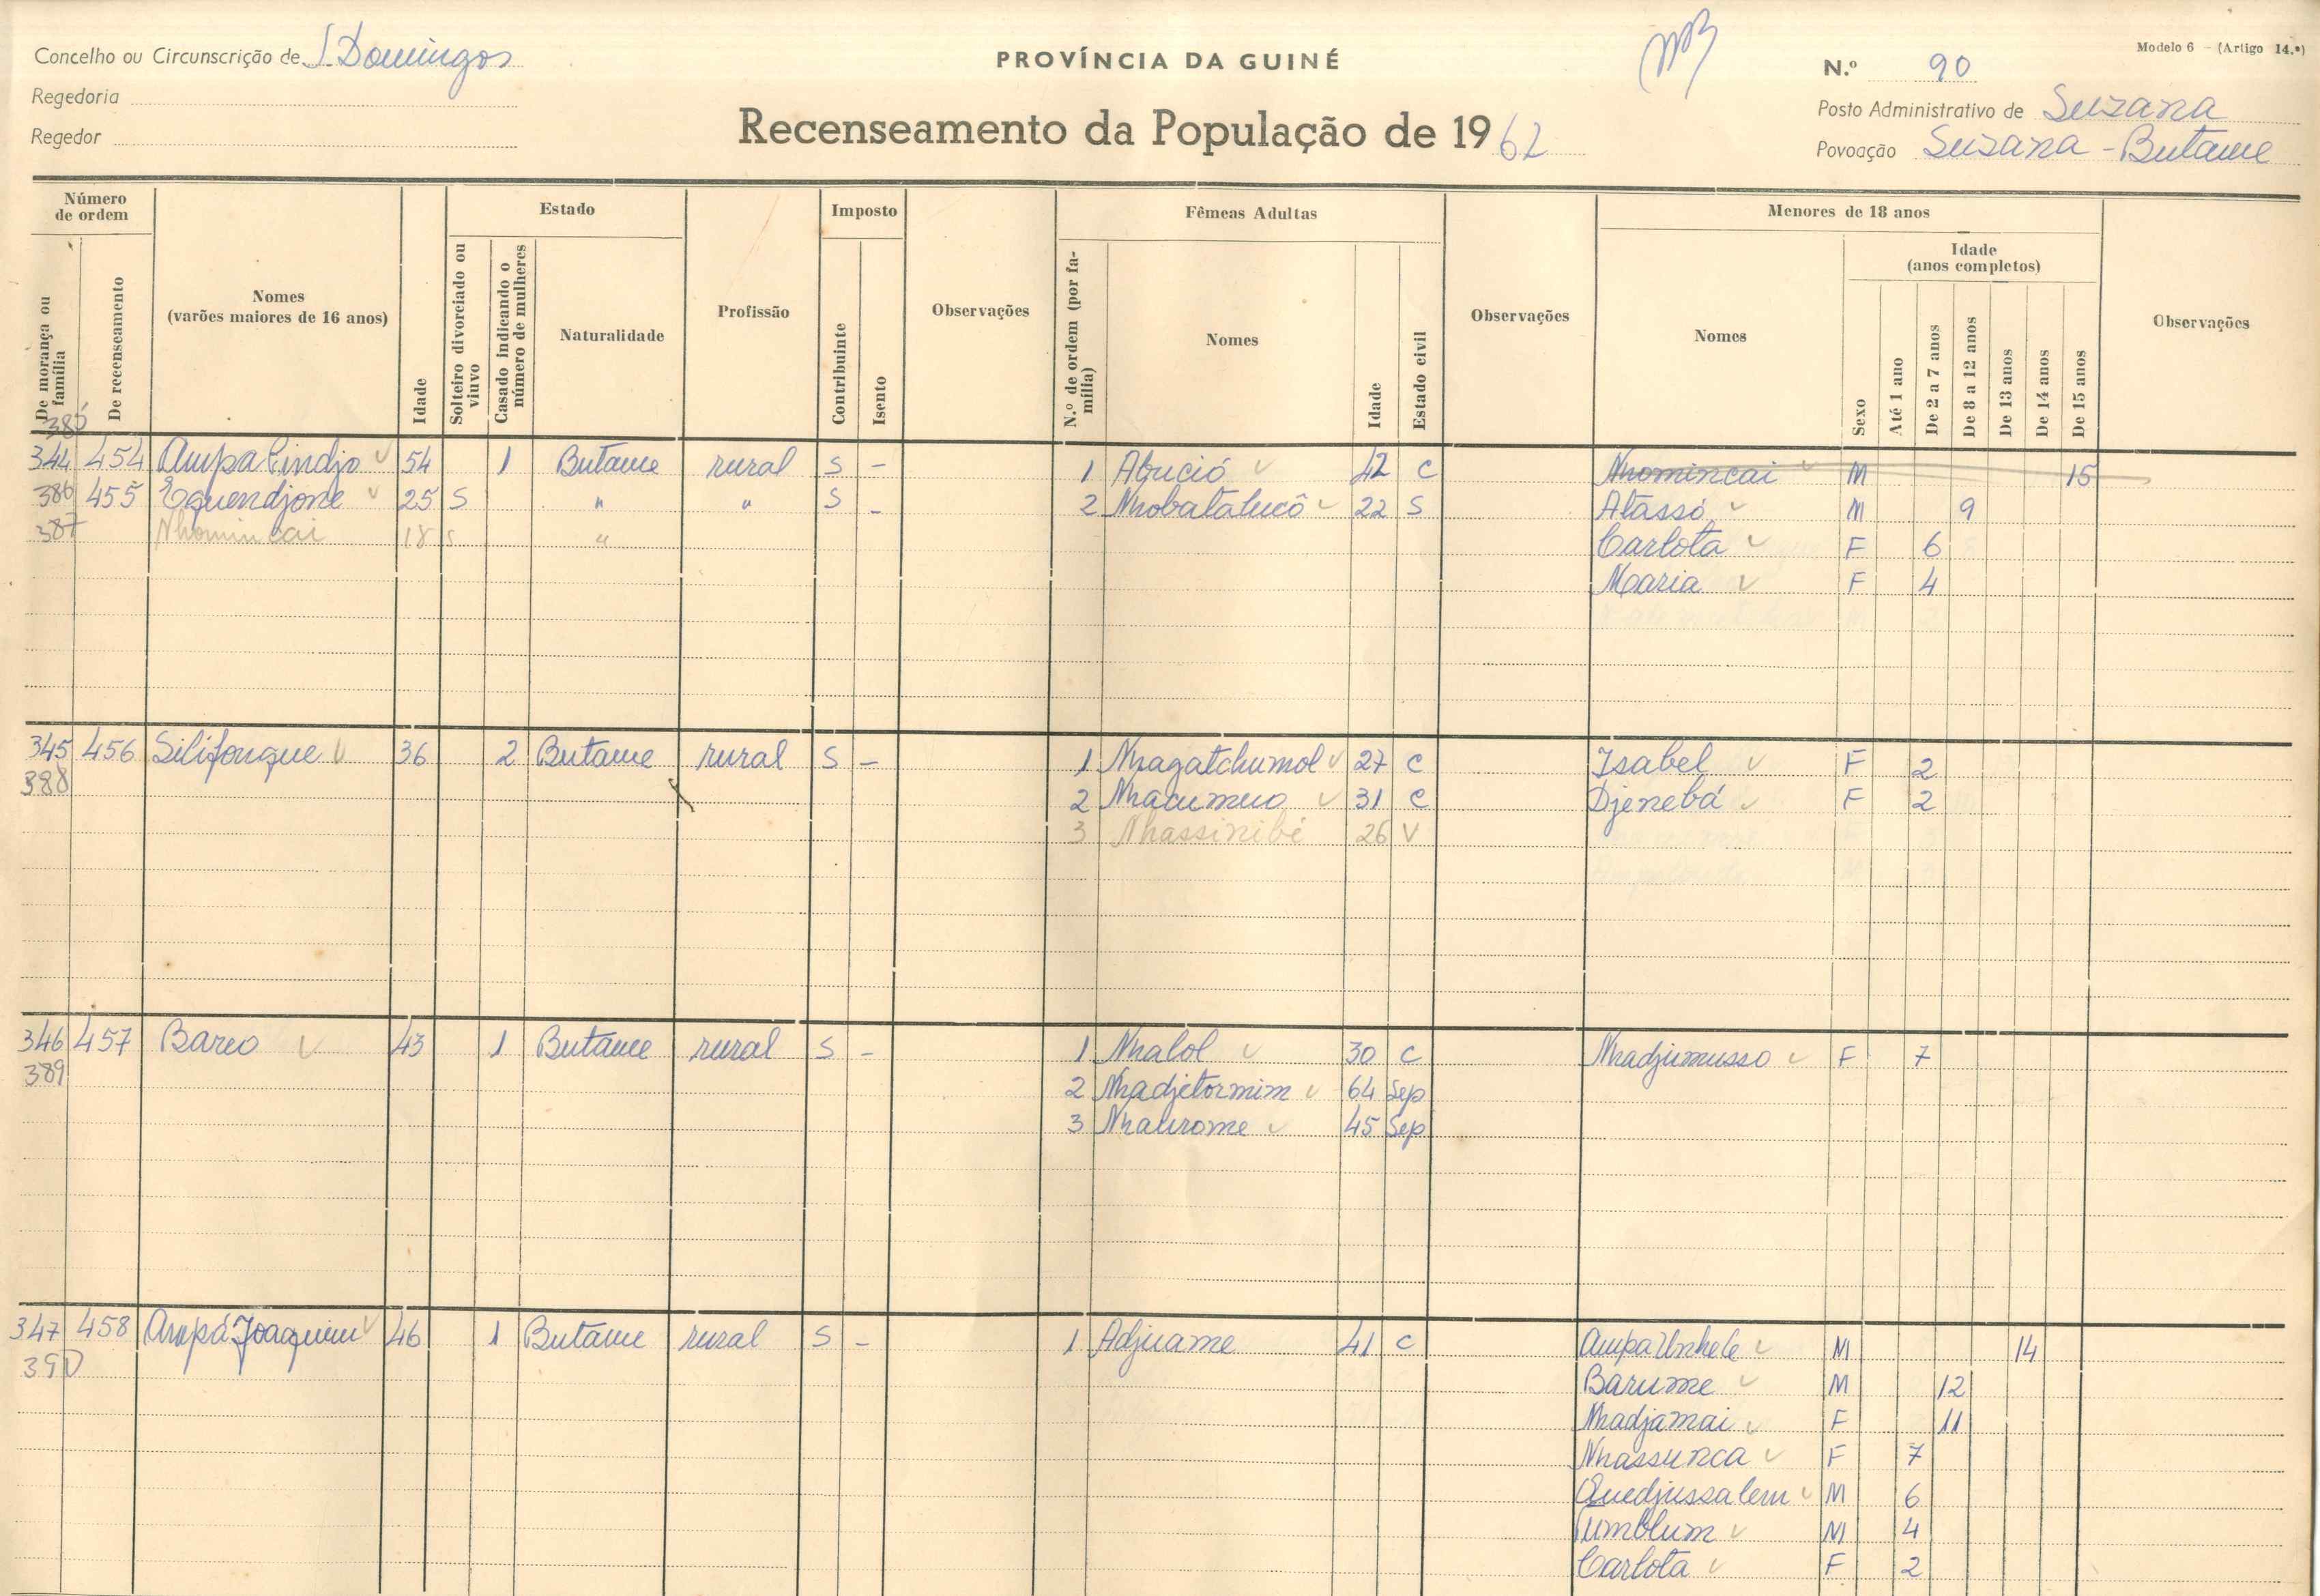 Modelo 6 - (Artigo 14.º)
Concelho ou Circunscrição de S. Domingos
PROVÍNCIA DA GUINÉ
N.º 90
Regedoria
Recenseamento da População de 1962
Posto Administrativo de Suzana
Regedor
Povoação Suzana - Butame
Número de ordem
Estado
Imposto
Fêmeas Adultas
Menores de 18 anos
De morança ou família
De recenseamento
Nomes (varões maiores de 16 anos)
Idade
Solteiro divorciado ou viuvo
Casado indicando o número de mulheres
Naturalidade
Profissão
Contribuinte
Isento
Observações
N.º de ordem (por família)
Nomes
Idade
Estado civil
Observações
Nomes
Sexo
Idade (anos completos)
Até 1 ano
De 2 a 7 anos
De 8 a 12 anos
De 13 anos
De 14 anos
De 15 anos
Observações
385
344 454 Ampa Cindjo 54 1 Butame rural S - 1 Abució 42 C Nhomincai M 15
386 455 Equendjone 25 S " " S - 2 Nhobatalucô 22 S Atassó M 9
387 Nhomincai 18 S " Carlota F 6
Maria F 4
345 456 Silifonque 36 2 Butame rural S - 1 Nhagatchumol 27 C Isabel F 2
388 2 Nhacumuo 31 C Djenebá F 2
3 Nhassinibé 26 V
346 457 Bareo 43 1 Butame rural S - 1 Nhalol 30 C Nhadjumusso F 7
389 2 Nhadjetormim 64 Sep
3 Nhaurome 45 Sep
347 458 Ampá Joaquim 46 1 Butame rural S - 1 Adjuame 41 C Ampa Unhele M 14
390 Barume M 12
Nhadjamai F 11
Nhassunca F 7
Quedjussalem M 6
Cumblum M 4
Carlota F 2